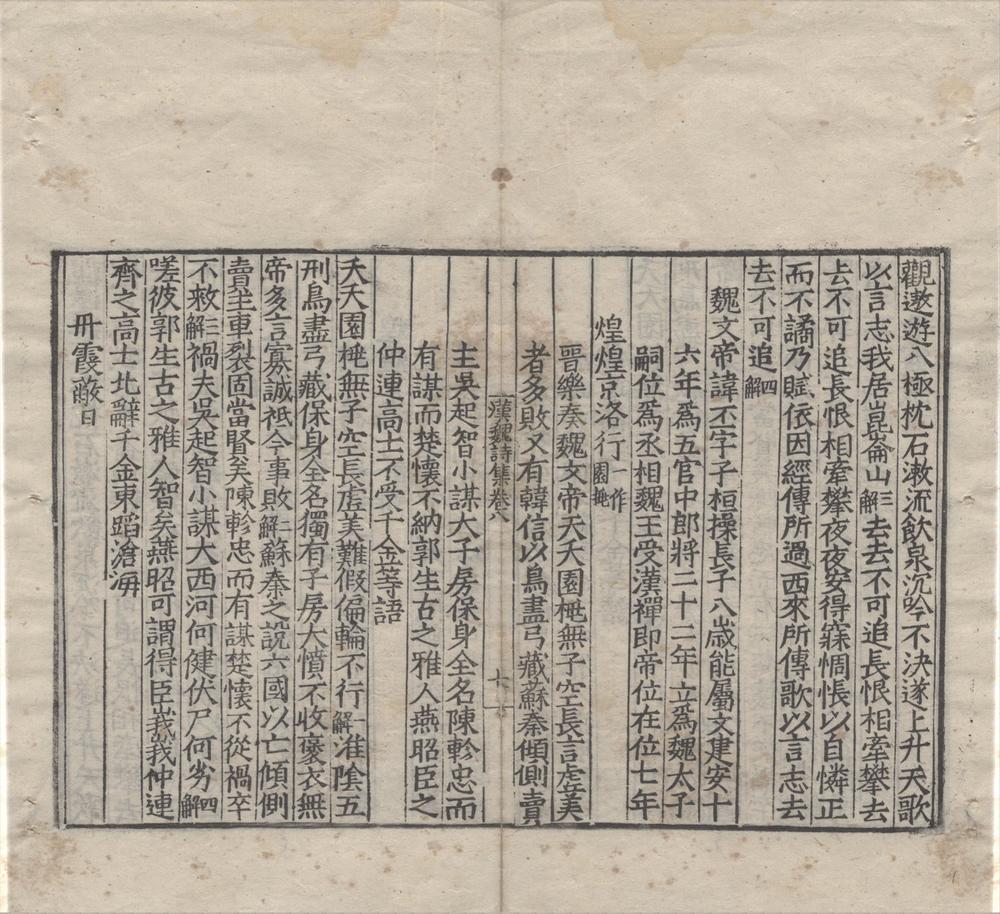 觀遨遊八極枕石漱流飲泉沉吟不決遂上升天歌
以言志我居崑崙山三解去去不可追長恨相牽攀去
去不可追長恨相牽攀夜夜安得寐惆悵以自憐正
而不譎乃賦依因經傳所過西來所傳歌以言志去
去不可追四解
魏文帝諱丕字子桓操長子八歲能屬文建安十
六年爲五官中郎將二十二年立爲魏太子
嗣位爲丞相魏王受漢禪即帝位在位七年
煌煌京洛行一作園桃
晉樂奏魏文帝夭夭園桃無子空長言虛美
者多敗又有韓信以鳥盡弓藏蘇秦傾側賣
漢魏詩集卷八
七
主吳起智小謀大子房保身全名陳軫忠而
有謀而楚懷不納郭生古之雅人燕昭臣之
仲連高士不受千金等語
夭夭園桃無子空長虛美難假偏輪不行一解淮陰五
刑鳥盡弓藏保身全名獨有子房大憤不收褒衣無
帝多言寡誠祗今事敗二解蘇秦之說六國以亡傾側
賣主車裂固當賢矣陳軫忠而有謀楚懷不從禍卒
不救三解禍夫吳起智小謀大西河何健伏尸何劣四解
嗟彼郭生古之雅人智矣燕昭可謂得臣峩峩仲連
齊之高士北辭千金東蹈滄海
丹霞蔽日